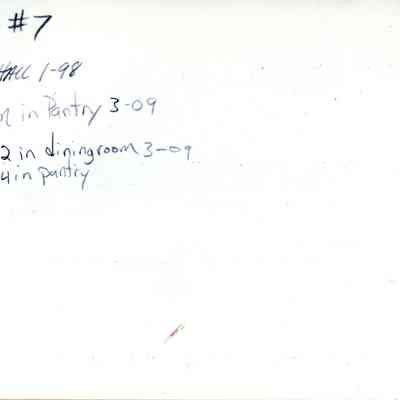 #7
HALL 1-98
in Pantry 3-09
2 in diningroom 3-09
4 in pantry